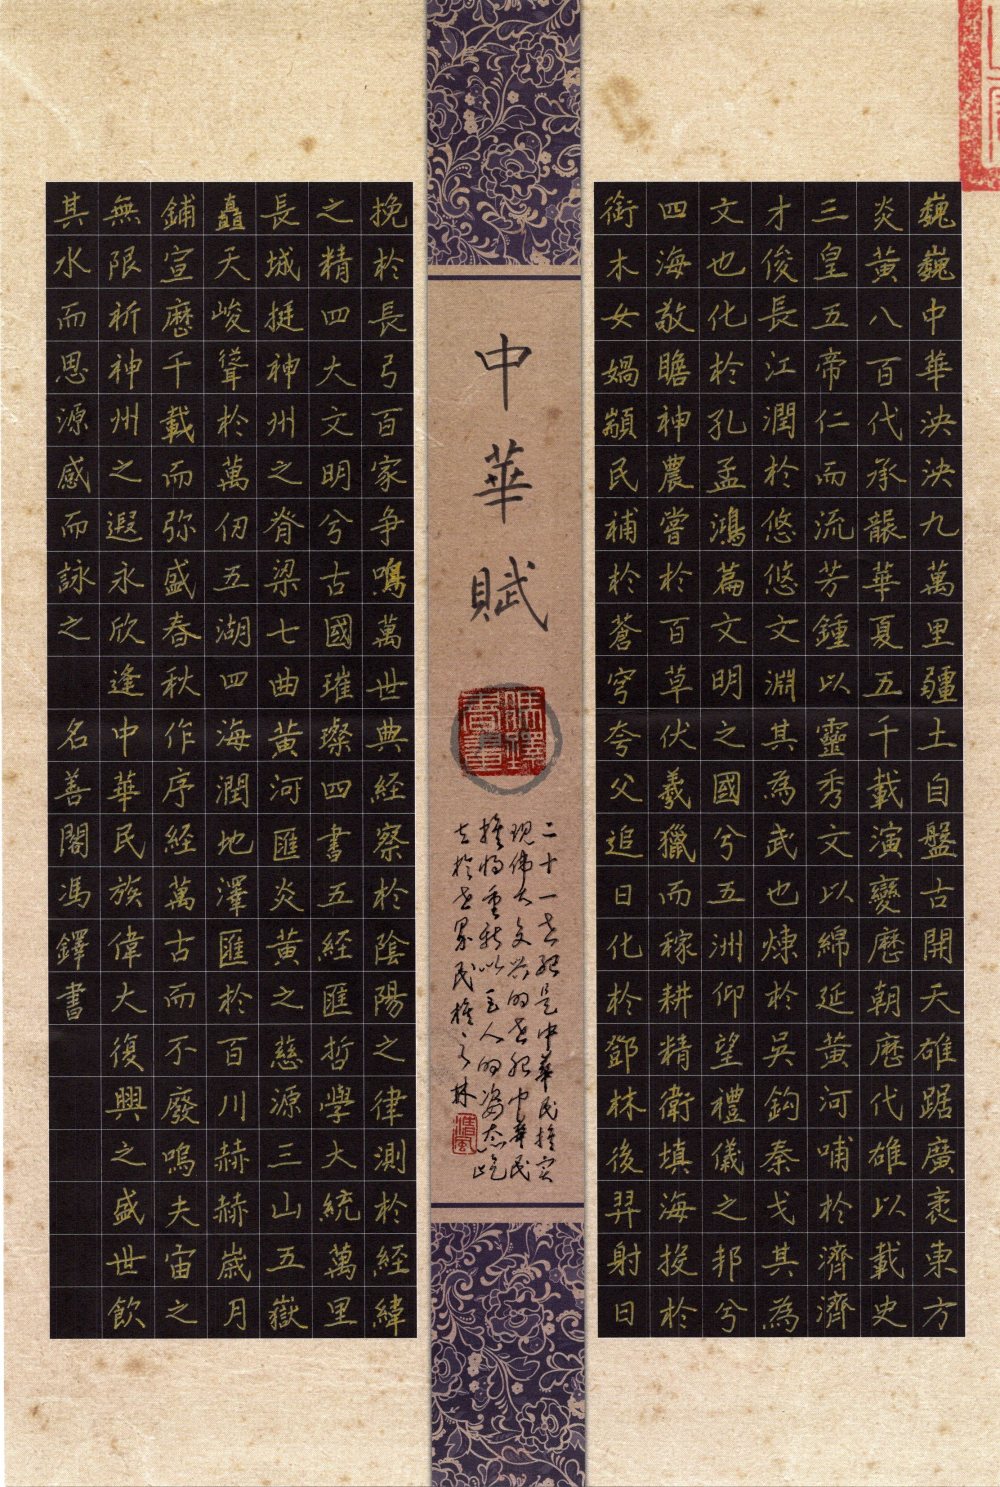 巍巍中華泱泱九萬里疆土自盤古開天雄踞廣袤東方
炎黃八百代承襲華夏五千載演變歷朝歷代雄以載史
三皇五帝仁而流芳鍾以靈秀文以綿延黃河哺於濟濟
才俊長江潤於悠悠文淵其為武也煉於吳鈎秦戈其為
文也化於孔孟鴻篇文明之國兮五洲仰望禮儀之邦兮
四海敬瞻神農嘗於百草伏羲獵而稼耕精衛填海投於
銜木女媧顓民補於蒼穹夸父追日化於鄧林後羿射日
中華賦
二十一世紀是中華民族實
現偉大復興的世紀中華民
族將重新以巨人的姿态屹
立於世界民族之林
挽於長弓百家爭鳴萬世典經察於陰陽之律測於經緯
之精四大文明兮古國璀璨四書五經匯哲學大統萬里
長城挺神州之脊梁七曲黃河匯炎黃之慈源三山五嶽
矗天峻聳於萬仞五湖四海潤地澤匯於百川赫赫歲月
鋪宣歷千載而弥盛春秋作序經萬古而不廢嗚夫宙之
無限祈神州之遐永欣逢中華民族偉大復興之盛世飲
其水而思源感而詠之 名善閣馮鐸書